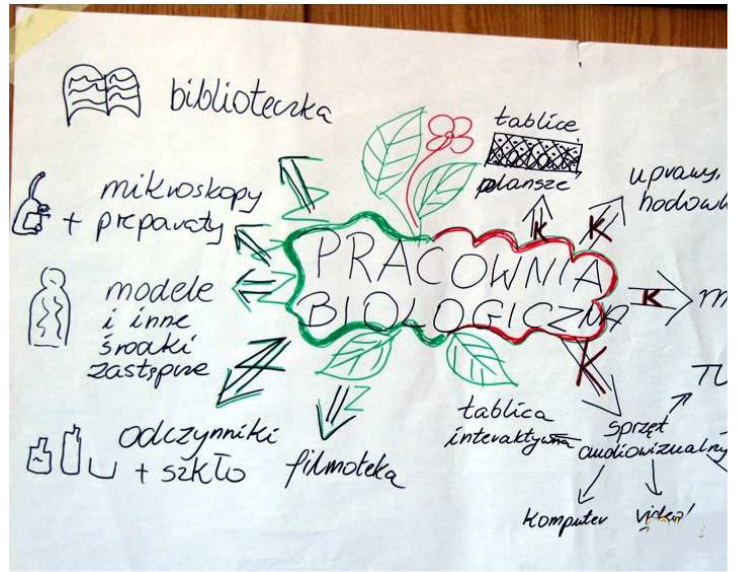 biblioteczka
mikroskopy
+ preparaty
modele
i inne
środki
zastępcze
odczynniki
+ szkło
filmoteka
PRACOWNIA
BIOLOGICZNA
tablice
plansze
K
uprawy,
K
K
K
tablica
interaktywna
sprzęt
audiowizualny
komputer
video